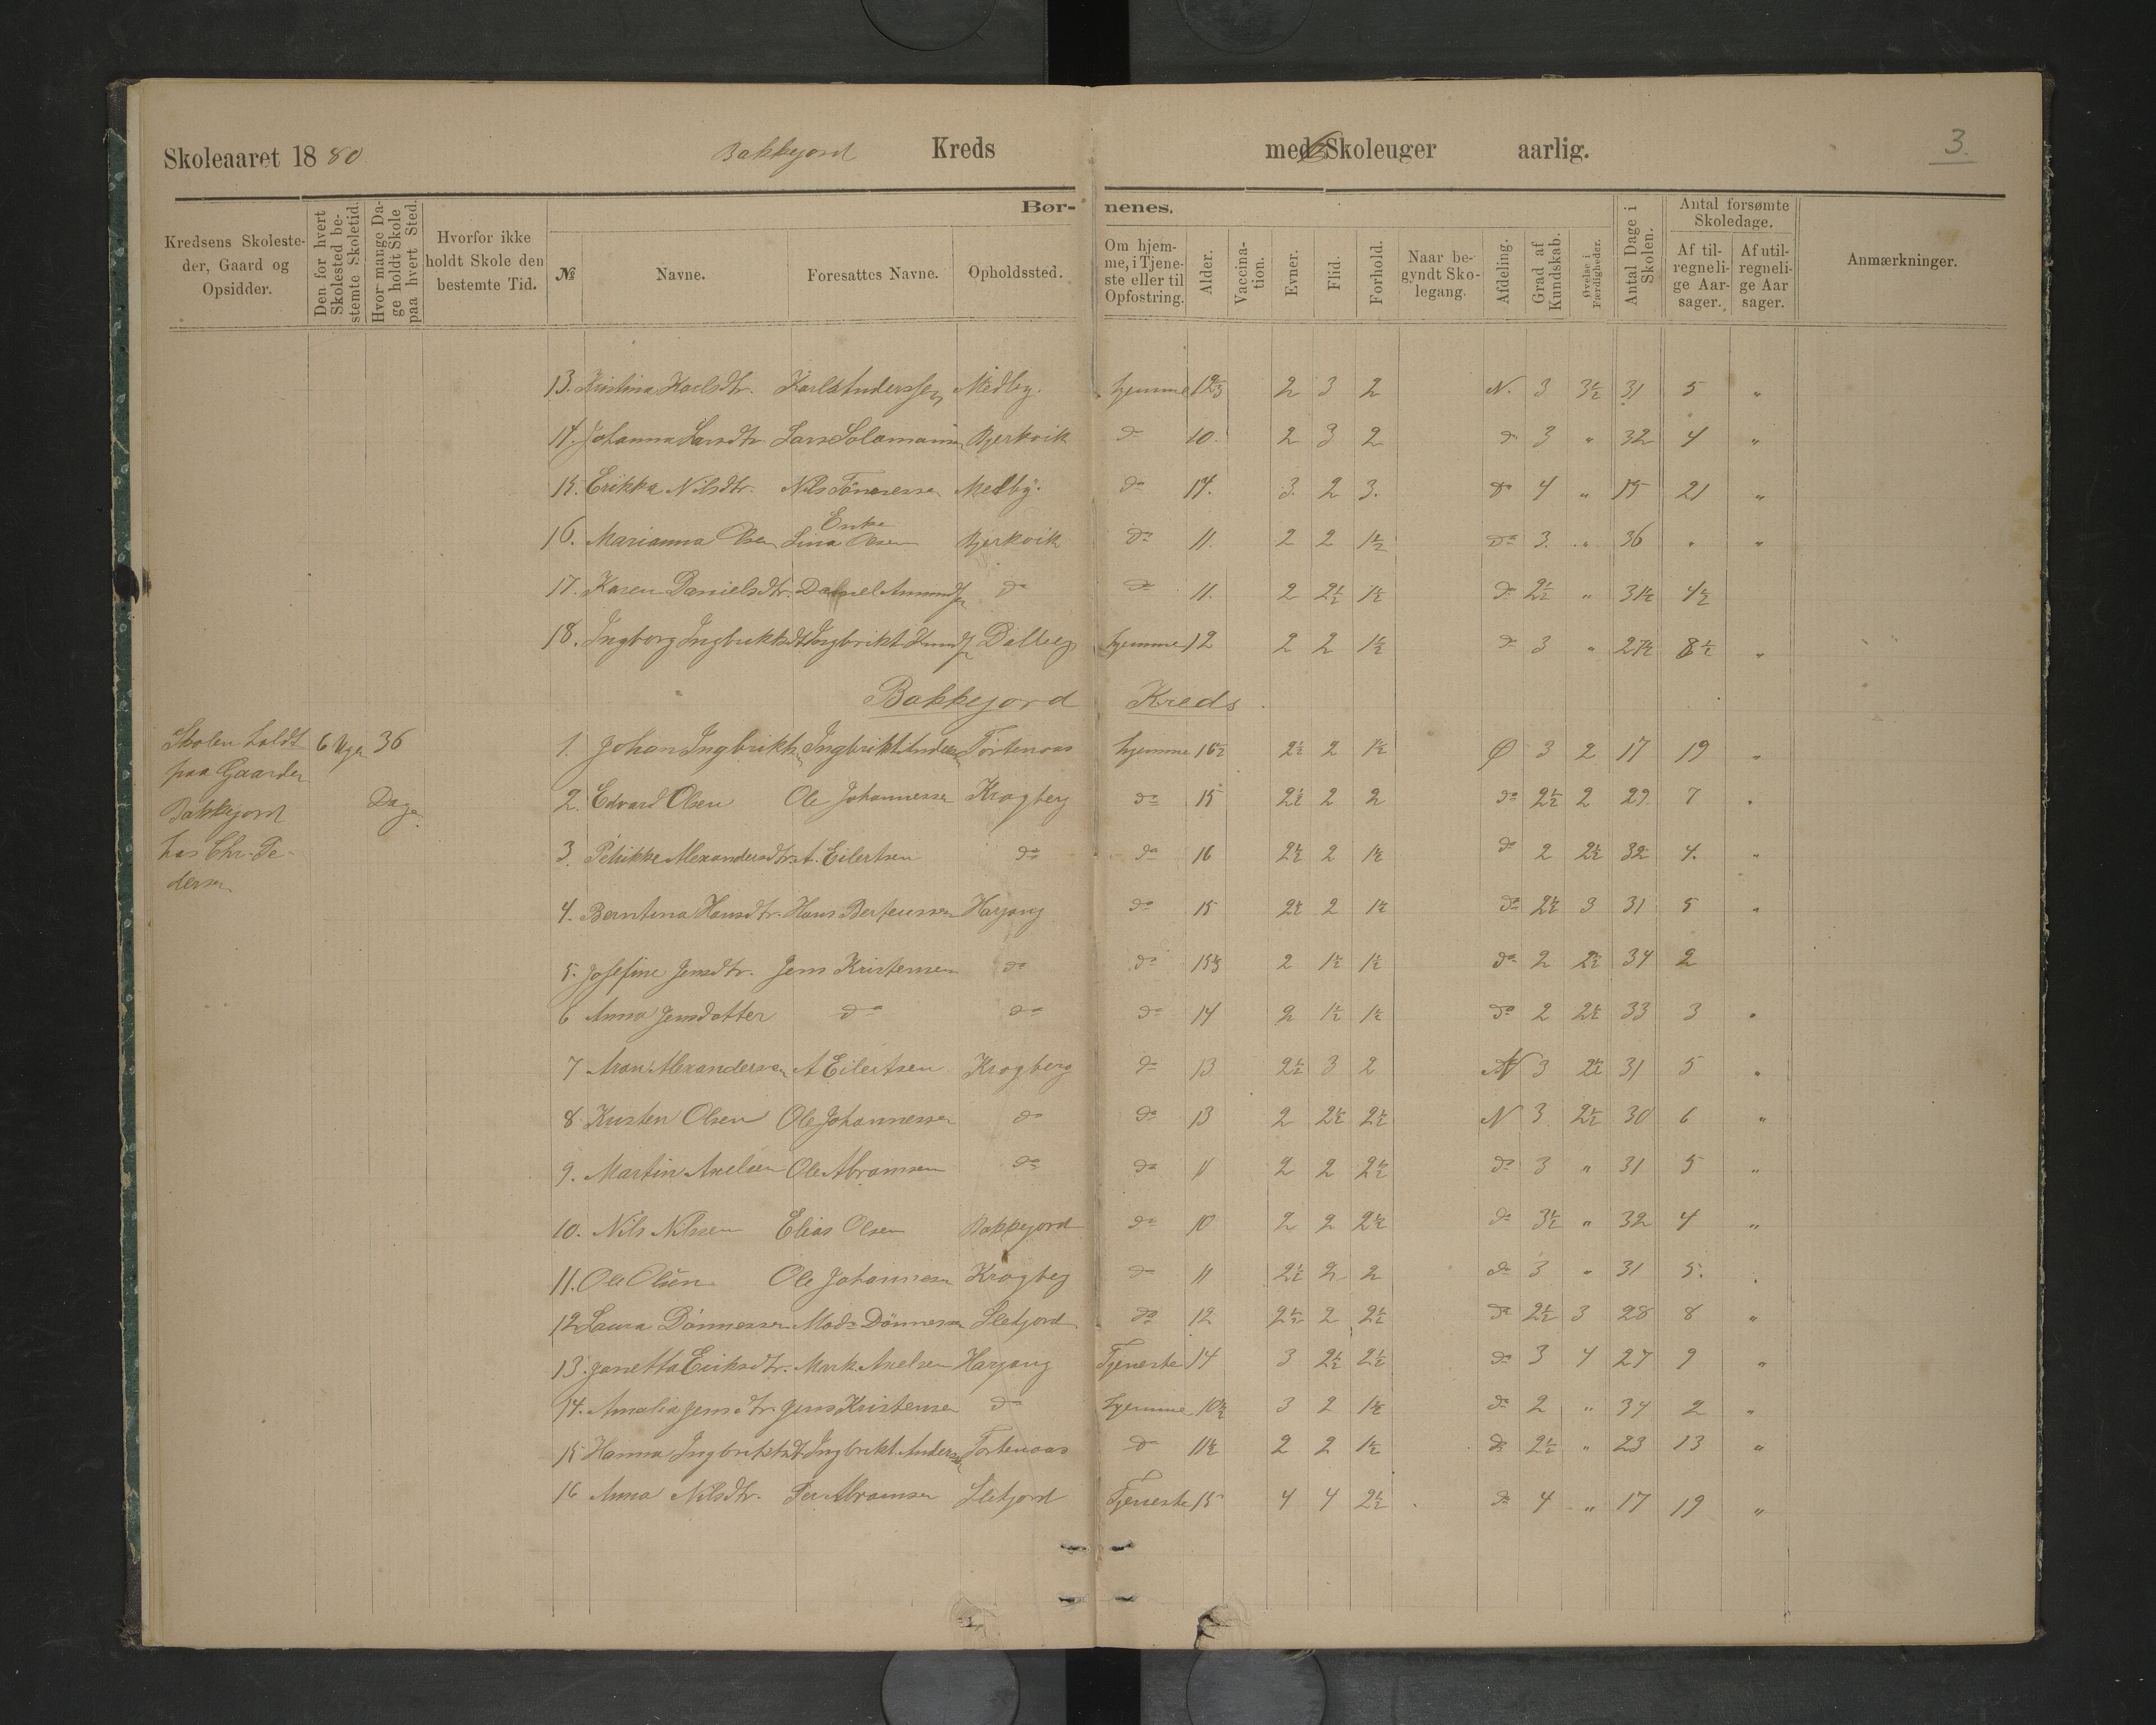 Skoleaaret 1880 Bakkejord Kreds med 6 Skoleuger aarlig. 3.
Kredsens Skolesteder, Gaard og Opsidder.
Den for hvert Skolested bestemte Skoletid.
Hvor mange Dage holdt Skole paa hvert Sted.
Hvorfor ikke holdt Skole den bestemte Tid.
Børnenes.
№
Navne.
Foresattes Navne.
Opholdssted.
Om hjemme, i Tjeneste eller til Opfostring.
Alder.
Vaccination.
Evner.
Flid.
Forhold.
Naar begyndt Skolegang.
Afdeling.
Grad af Kundskab.
Øvelse i Færdigheder.
Antal Dage i Skolen.
Antal forsømte Skoledage.
Af tilregnelige Aarsager.
Af utilregnelige Aarsager.
Anmærkninger.
13. Kristina Karlsdtr. Karl Anderssen Medby. hjemme 2 3 2 N. 3 3½ 31 5 "
14. Johanna Larsdtr. Lars Solomonsen Bjerkvik do 10. 2 3 2 do 3 " 32 4 "
15. Erikka Nilsdtr. Nils Tönnesen Medby. do 14. 3. 2 3. do 4 " 15 21 "
16. Marianna Olsen Enke Lina Olsen Bjerkvik do 11. 2 2 1½ do 3. " 36 " "
17. Karen Danielsdtr. Daniel Amundsen do do 11. 2 2½ 1½ do 2½ " 31½ 4½
18. Ingborg Ingbriktsdt Ingbrikt Dalberg hjemme 12 2 2 1½ do 3 " 27½ 8½ "
Bakkejord Kreds
Skolen holdt paa Gaarden Bakkejord hos Chr. Pedersen
6 Uger
36 Dage
1. Johan Ingbriktsen Ingbrikt Anderssen Tortenaas hjemme 16½ 2½ 2 1½ Ø 3 2 17 19 "
2. Edvard Olsen Ole Johannessen Kragberg do 15 2½ 2 2 do 2½ 2 29 7 "
3. Petrikke Alexandersdtr. A. Eilertsen do do 16 2½ 2 1½ do 2 2½ 32 4. "
4. Berntina Hansdtr. Hans Berteussen Harjang do 15 2½ 2 1½ do 2½ 3 31 5 "
5. Josefine Jensdtr. Jens Kristensen do do 15½ 2 1½ 1½ do 2 2½ 34 2
6 Anna Jensdatter do do do 14 2 1½ 1½ do 2 2½ 33 3 "
7 Aron Alexandersen A Eilertsen Kragberg do 13 2½ 3 2 N 3 2½ 31 5 "
8 Kristen Olsen Ole Johannessen do do 13 2 2½ 2½ N 3 2½ 30 6 "
9. Martin Axelsen Ole Abramsen do do 11 2 2 2½ do 3 " 31 5 "
10. Nils Nilssen Elias Olsen Bakkejord do 10 2 2 2½ do 3½ " 32 4 "
11. Ole Olsen Ole Johannesen Kragberg do 11 2½ 2 2 do 3 " 31 5. "
12 Laura Dönnessen Mads Dönnessen Sletjord do 12 2½ 2 2½ do 2½ 3 28 8 "
13. Janetta Eriksdtr. Mark. Axelsen Harjang Tjeneste 14 3 2½ 2½ do 3 4 27 9 "
14. Amalia Jensdtr. Jens Kristensen do hjemme 10½ 3 2 1½ do 2 " 34 2 "
15 Hanna Ingbriktsdt Ingbrikt Anderssen Tortenaas do 11½ 2 2 1½ do 2½ " 23 13 "
16 Anna Nilsdtr. Per Abramsen Sletjord Tjeneste 15 4 4 2½ do 4 " 17 19 "